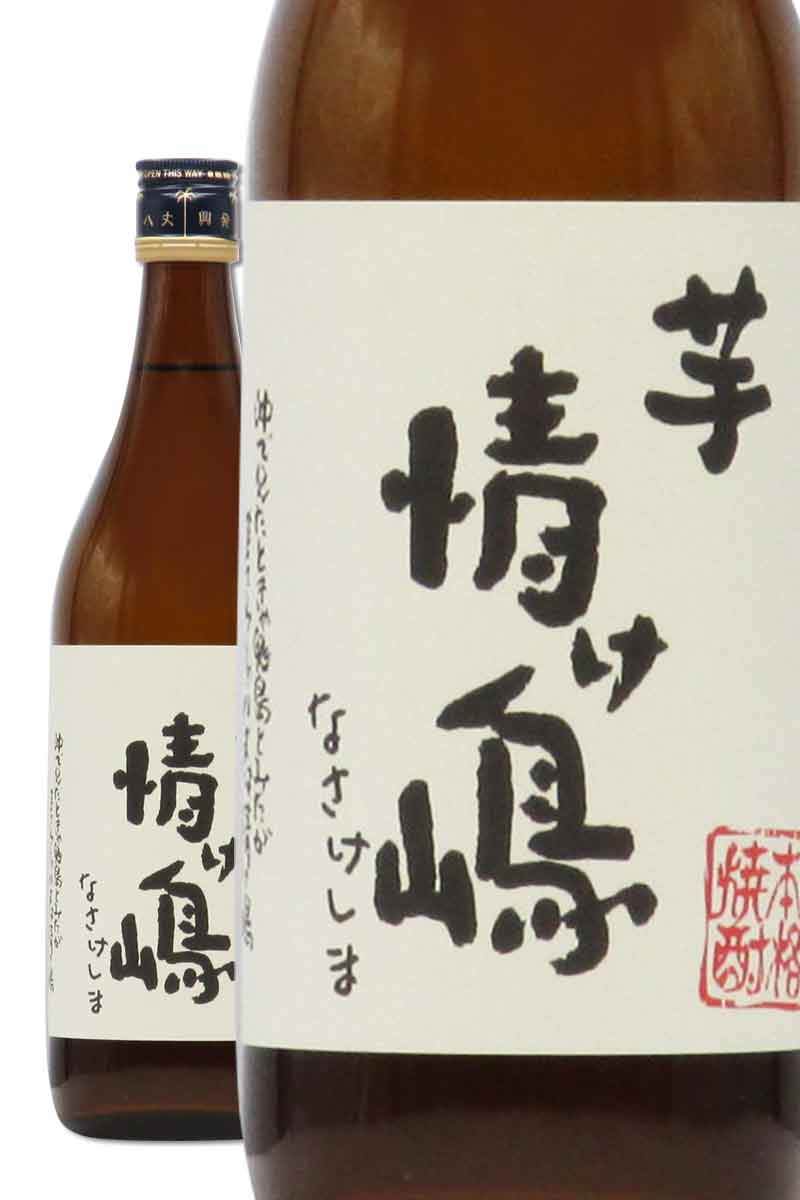 芋
情け嶋
なさけしま
本格
焼酎
沖でみたときや鬼島とみたが
OPEN THIS WAY
八丈興発
情け嶋
なさけしま
沖でみたときや鬼島とみたが